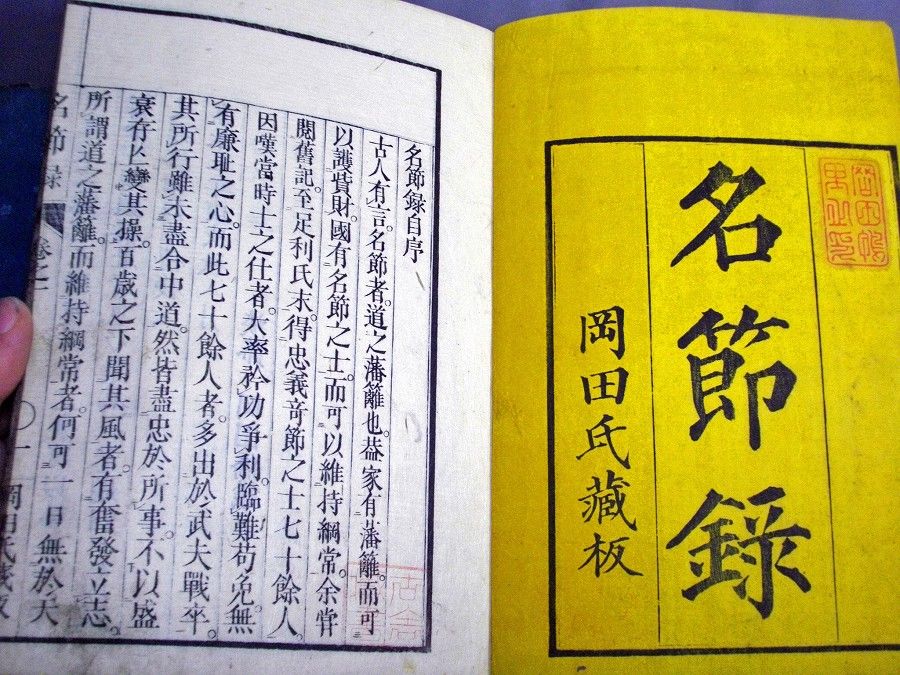 名節錄
岡田氏藏板
名節錄自序
古人有言。名節者。道之藩籬也。葢家有藩籬。而可
以護貲財。國有名節之士。而可以維持綱常。余甞
閱舊記。至足利氏末。得忠義竒節之士七十餘人。
因嘆當時士之仕者。大率矜功爭利。臨難苟免。無
有廉耻之心。而此七十餘人者。多出於武夫戰卒。
其所行雖未盡合中道。然皆盡忠於所事。不以盛
衰存亾變其操。百歲之下聞其風者。有奮發立志。
所謂道之藩籬。而維持綱常者。何可一日無於天
名節錄 卷之一 〇一